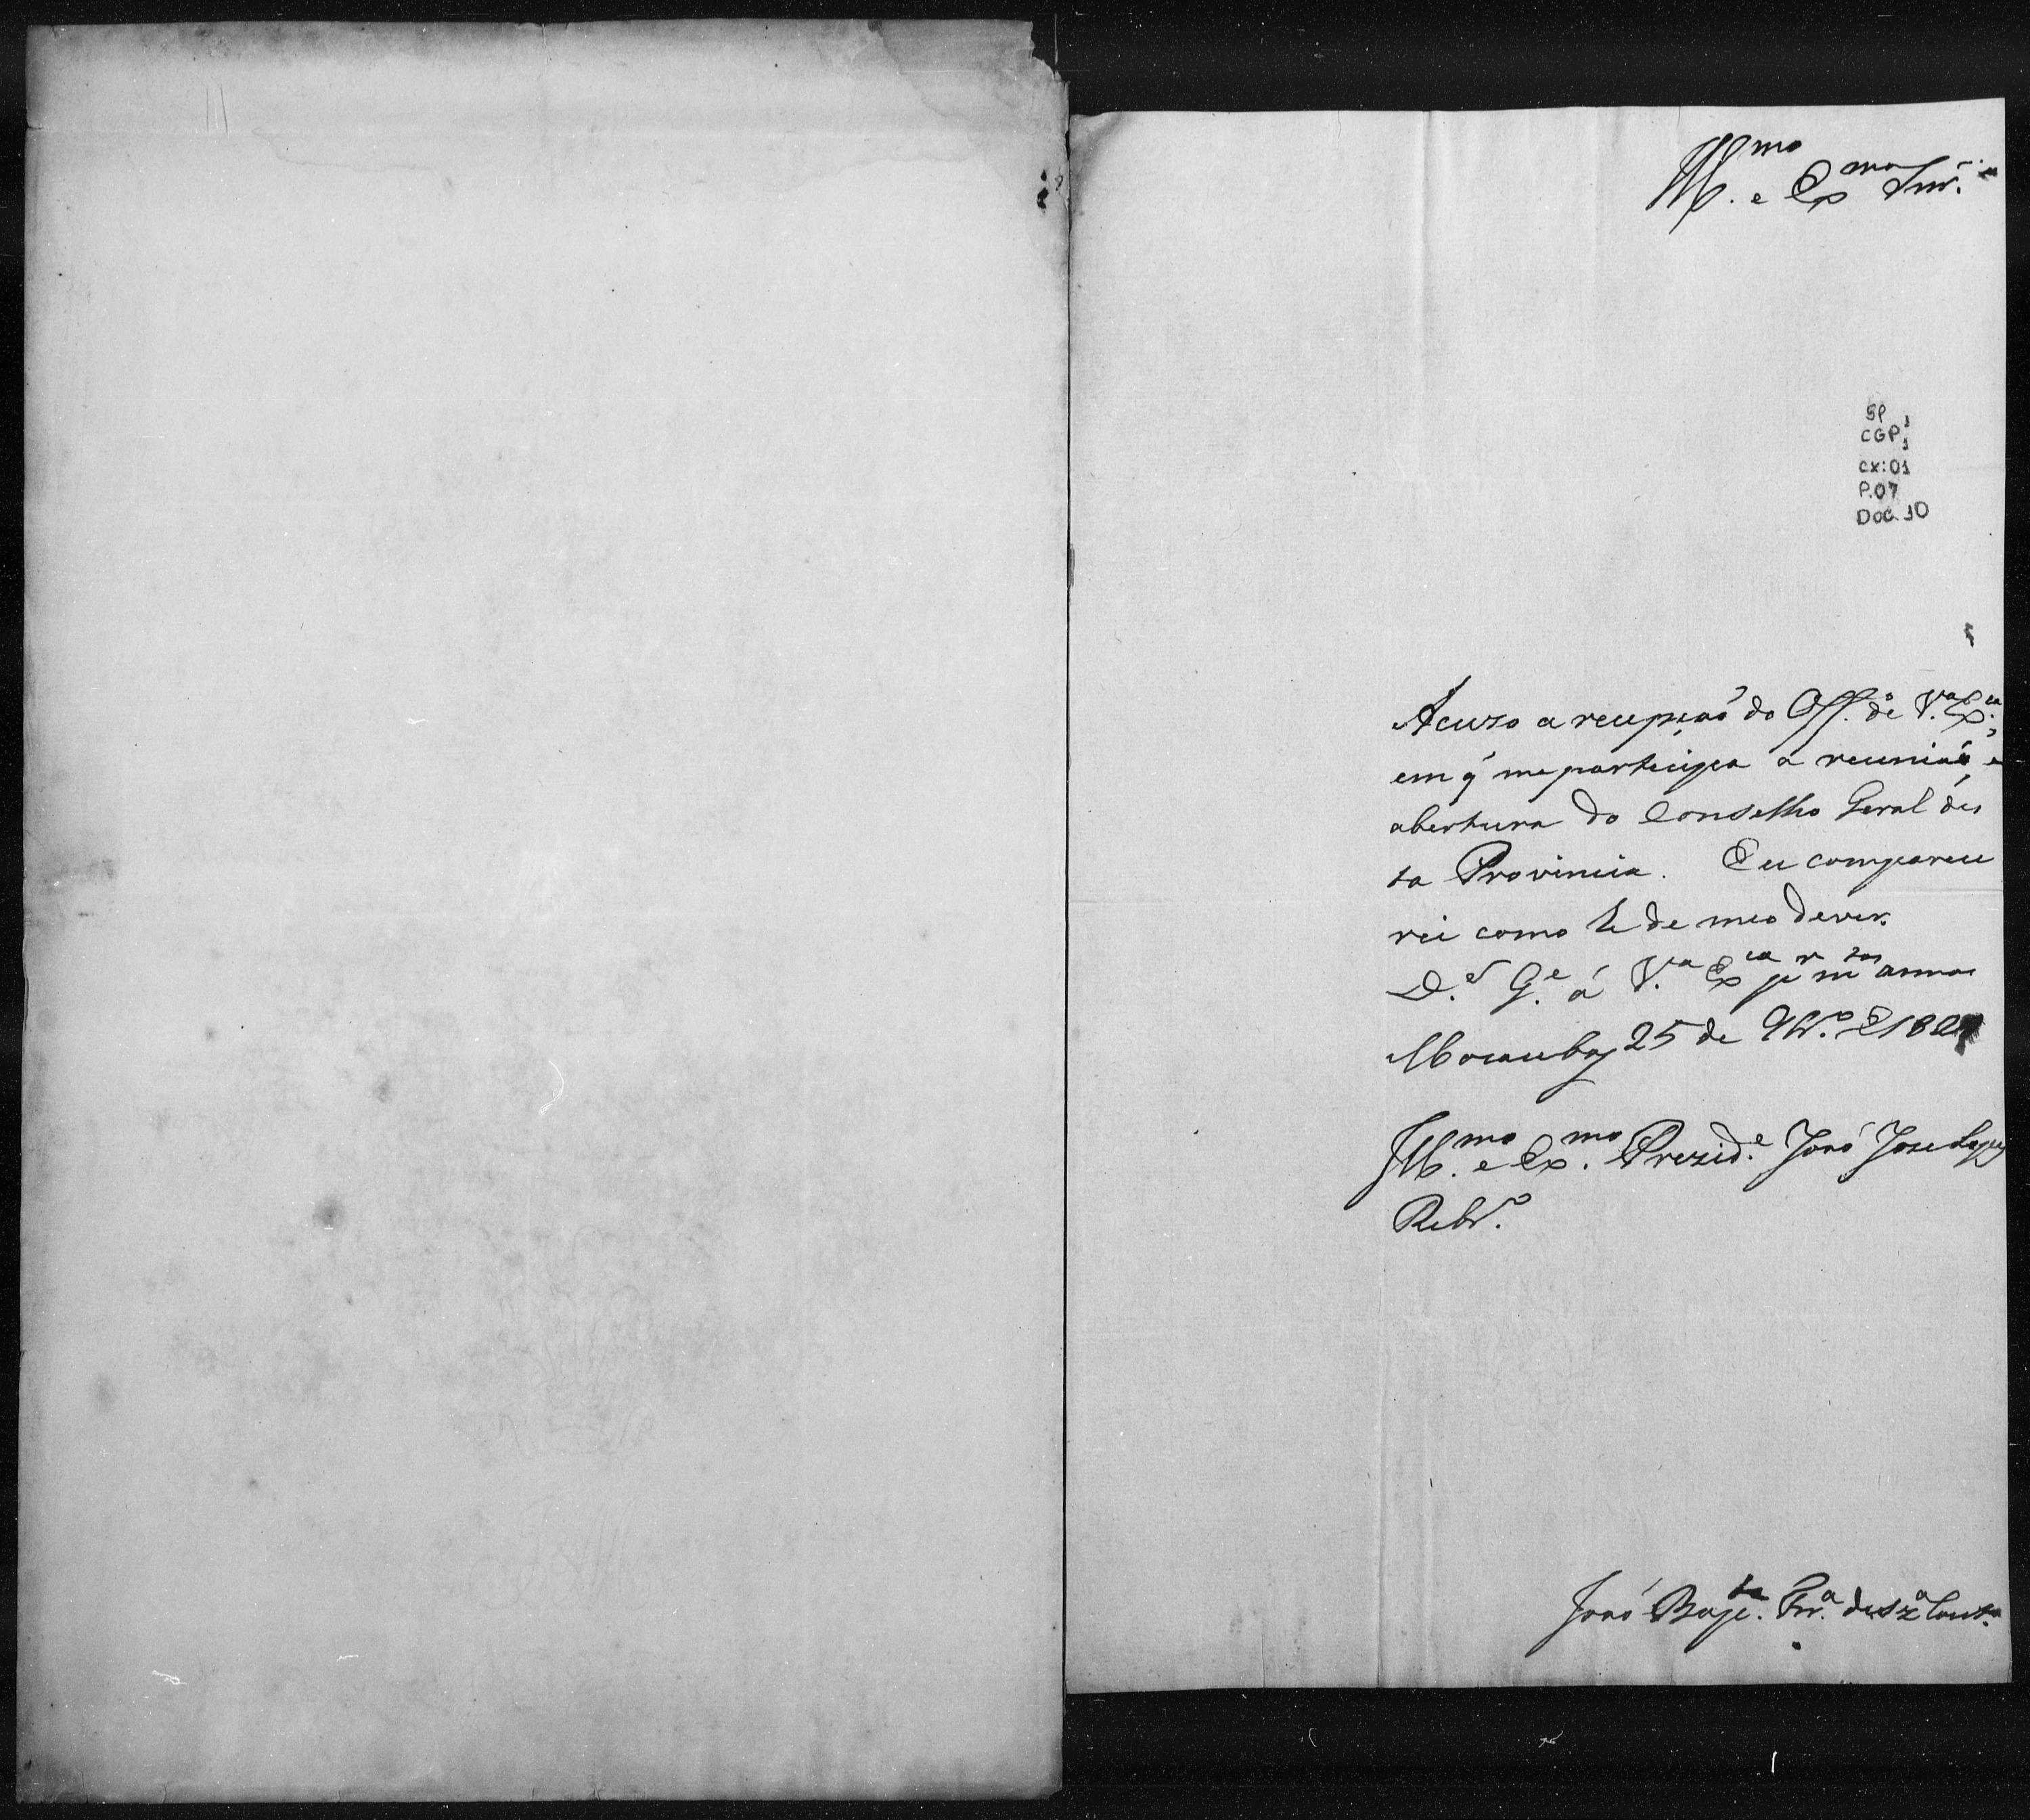 Ill.mo e Ex.mo Snr.
SP 1
CGP 1
CX:01
P.07
Doc. 10
Acuzo a recepçaõ do Off.º de V.ª Ex.ca,
em q̃ me participa a reuniaõ, e
abertura do Conselho Geral des
ta Provincia. Eu comparece
rei como he de meo dever.
D.s G.e á V.ª Ex.ca p.r m.tos annos
Macaubas 25 de 9br.º de 182
Ill.mo e Ex.mo Prezid.e Joaõ Joze Lopes
Rebr.º
Joaõ Bap.ta Fr.ª de Sz.ª Cout.º